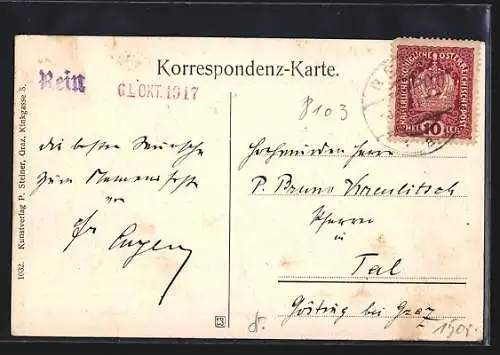 Korrespondenz-Karte.
Rein
61. OKT. 1917
KAISERLICHE KÖNIGLICHE ÖSTERREICHISCHE POST
HELLER 10 HELLER
8103
die besten Wünsche
zum Namensfeste
von
Fr. Eugen
Hochwürden Herrn
P. Bruno
Pfarrer
in
Tal
Gösting bei Graz
1903.
1632. Kunstverlag P. Steiner, Graz, Kinkgasse 5.